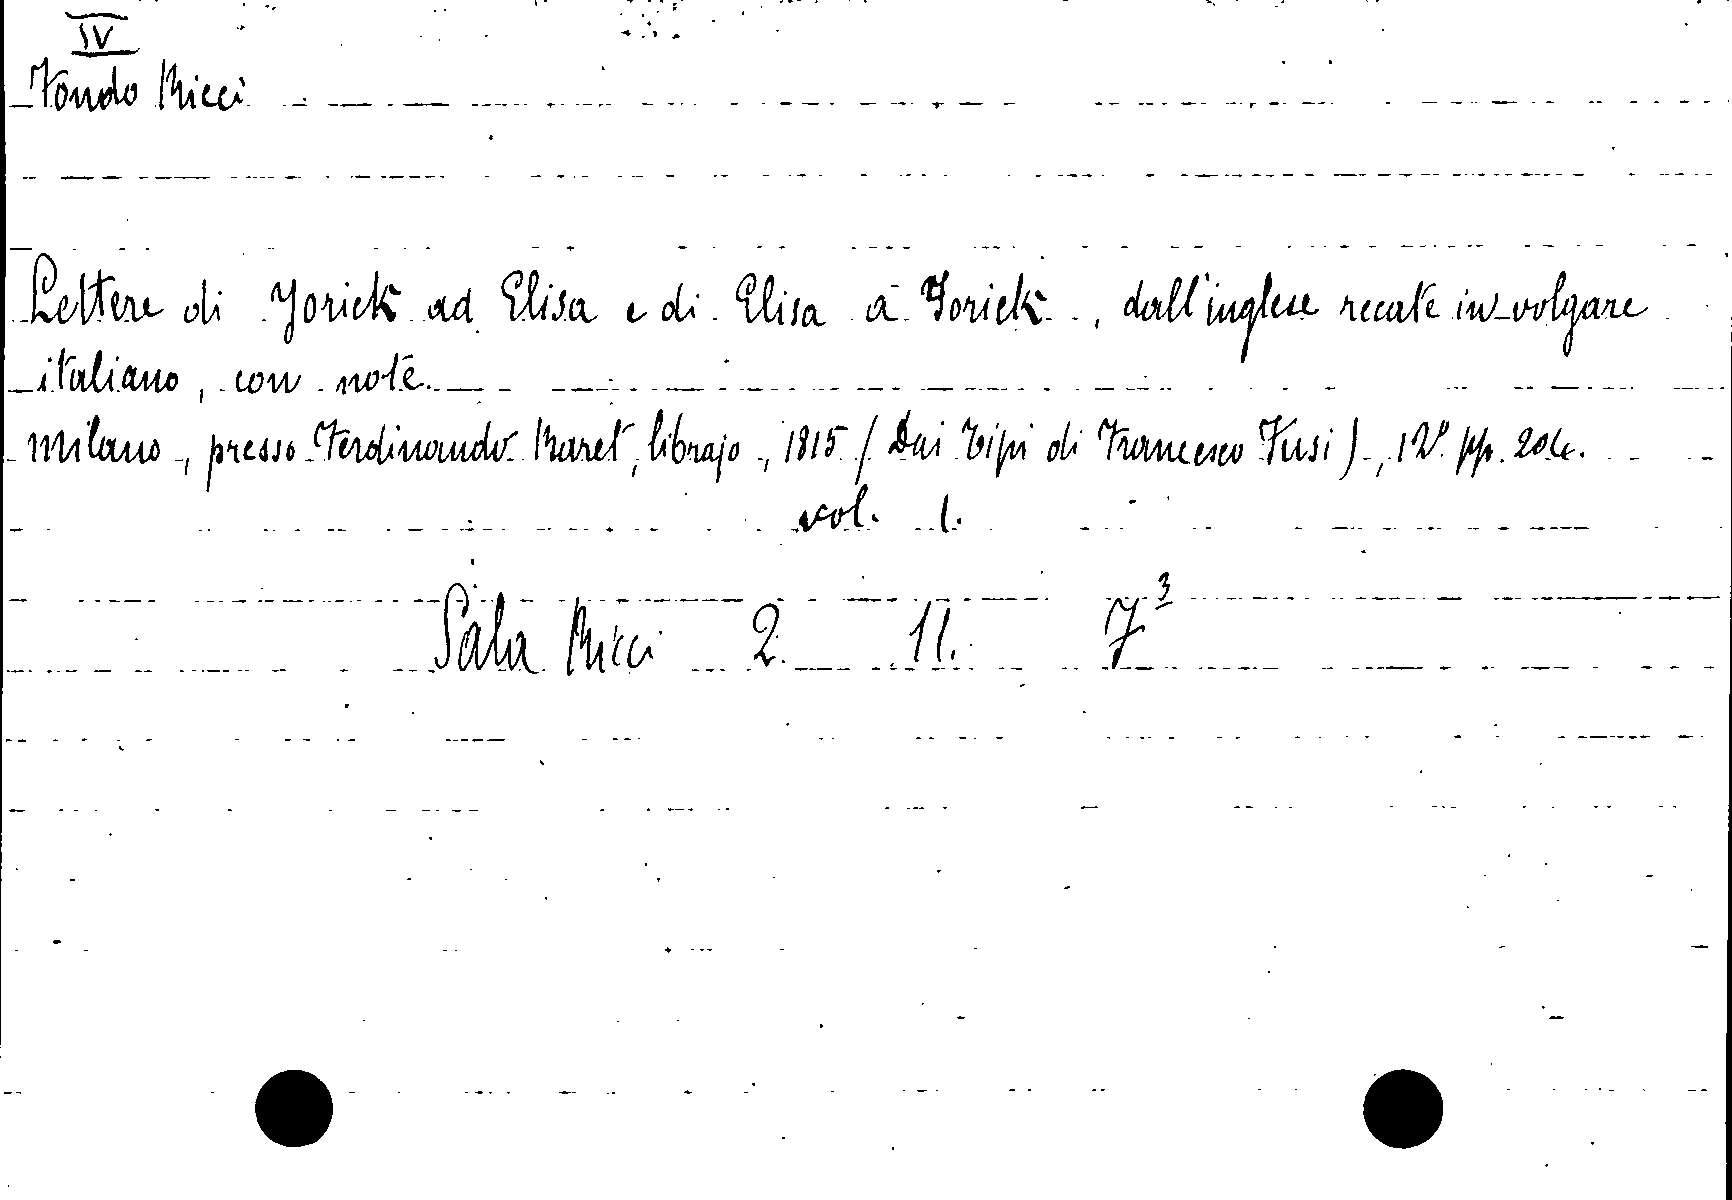 IV
Fondo Ricci
Lettere di Yorick ad Elisa e di Elisa a Yorick, dall'inglese recate in volgare
italiano, con note.
Milano, presso Ferdinando Baret, librajo, 1815 (Dai Tipi di Francesco Fusi), 12º pp. 204.
vol. 1.
Sala Ricci 2. 11. 7³